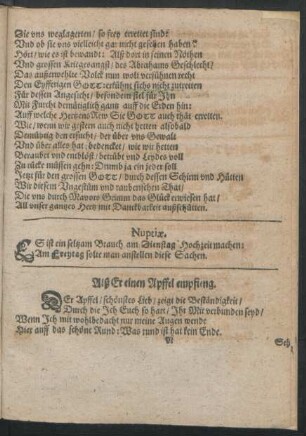 Die uns weglagerten / so frey errettet sindt
Und ob sie uns vielleicht gar nicht gesehen haben?
Hört / wie es ist bewandt: Alß dort in seinen Nöthen
Und grossen Kriegesangst / des Abrahams Geschlecht /
Das außerwehlte Volck nun wolt versühnen recht
Den Eyffrigen GOTT
Für dessen Angesicht / besondern fiel für Ihn
Mit Furcht demütiglich gantz auff die Erden hin:
Auff welche Hertzens Rew Sie GOTT auch thät erretten.
Wie / wenn wir gestern auch nicht hetten alsobald
Demütig den ersucht / der über uns Gewalt
Und über alles hat: bedencket / wie wir hetten
Beraubet und entblöst / betrübt und Leydes voll
Zu rücke müssen gehn: Drumb ja ein jeder soll
Jetzt für den grossen GOTT / durch dessen Schirm und Hütten
Wir diesem Ungestüm und raubenschen That /
Die uns durch Mavors Grimm das Glück erwiesen hat /
All unser gantzes Hertz mit Danckbarkeit außschütten.
Nuptiæ.
ES ist ein seltzam Brauch am Dienstag Hochzeit machen:
Am Freytag solte man anstellen diese Sachen.
Alß Er einen Apffel empfieng.
DEr Apffel / schönstes Lieb / zeigt die Beständigkeit /
Durch die Ich Euch so hart / Ihr Mir verbunden seyd /
Wenn Ich mit wohlbedacht nur meine Augen wende
Hier auff das schöne Rund: Was rund ist hat kein Ende.